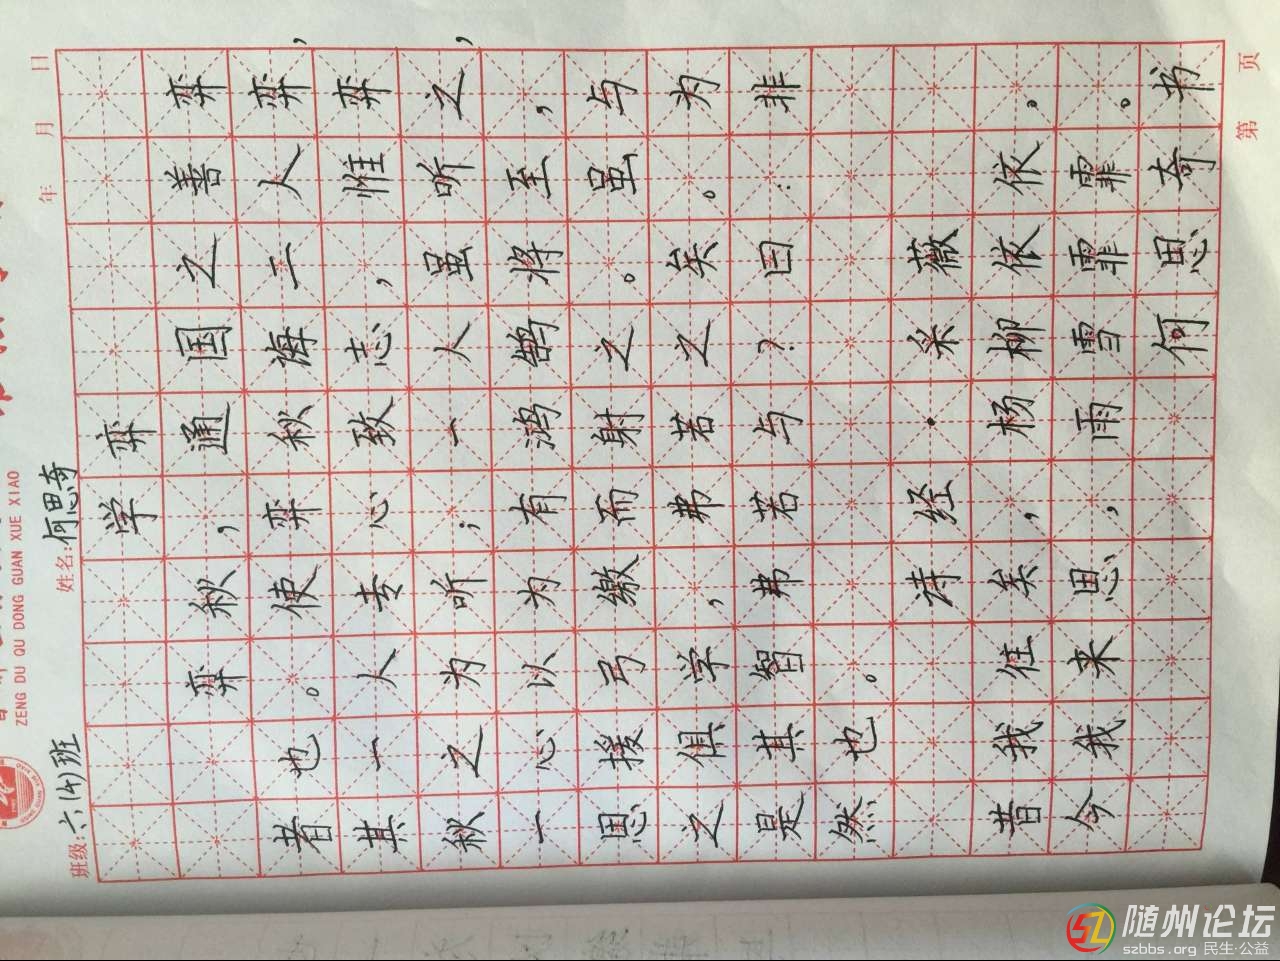 ZENG DU QU DONG GUAN XUE XIAO
班级:六(4)班 姓名:何思奇 年 月 日
学弈
弈秋,通国之善弈
者也。使弈秋诲二人弈,
其一人专心致志,惟弈
秋之为听;一人虽听之,
一心以为有鸿鹄将至,
思援弓缴而射之。虽与
之俱学,弗若之矣。为
是其智弗若与?曰:非
然也。
诗经·采薇
昔我往矣,杨柳依依。
今我来思,雨雪霏霏。
何思奇书
第 页
随州论坛
szbbs.org 民生·公益